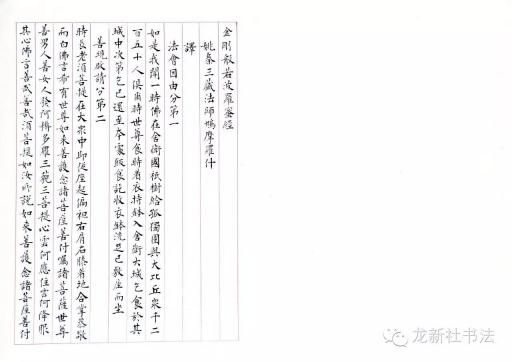 金剛般若波羅蜜經
姚秦三藏法師鳩摩羅什
譯
法會因由分第一
如是我聞一時佛在舍衛國祇樹給孤獨園與大比丘眾千二
百五十人俱爾時世尊食時着衣持缽入舍衛大城乞食於其
城中次第乞已還至本處飯食訖收衣缽洗足已敷座而坐
善現啟請分第二
時長老須菩提在大眾中即從座起偏袒右肩右膝着地合掌恭敬
而白佛言希有世尊如來善護念諸菩薩善付囑諸菩薩世尊
善男人善女人發阿耨多羅三藐三菩提心云何應住云何降服
其心佛言善哉善哉須菩提如汝所說如來善護念諸菩薩善付
龙新社书法